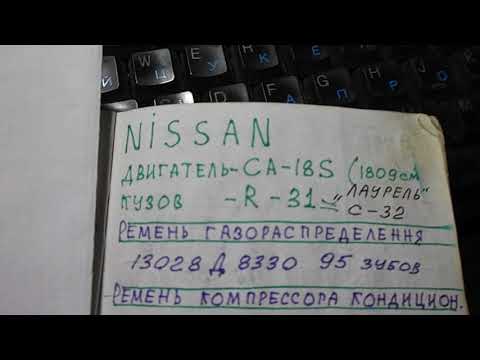 Ц У К Е
Ф А П Р О
NiSSAN
ДВИГАТЕЛЬ-СА-18S (1809см
КУЗОВ -R-31= "ЛАУРЕЛЬ"
С-32
РЕМЕНЬ ГАЗОРАСПРЕДЕЛЕННЯ
13028 Д 8330 95 ЗУБОВ
РЕМЕНЬ КОМПРЕССОРА КОНДИЦИОН.